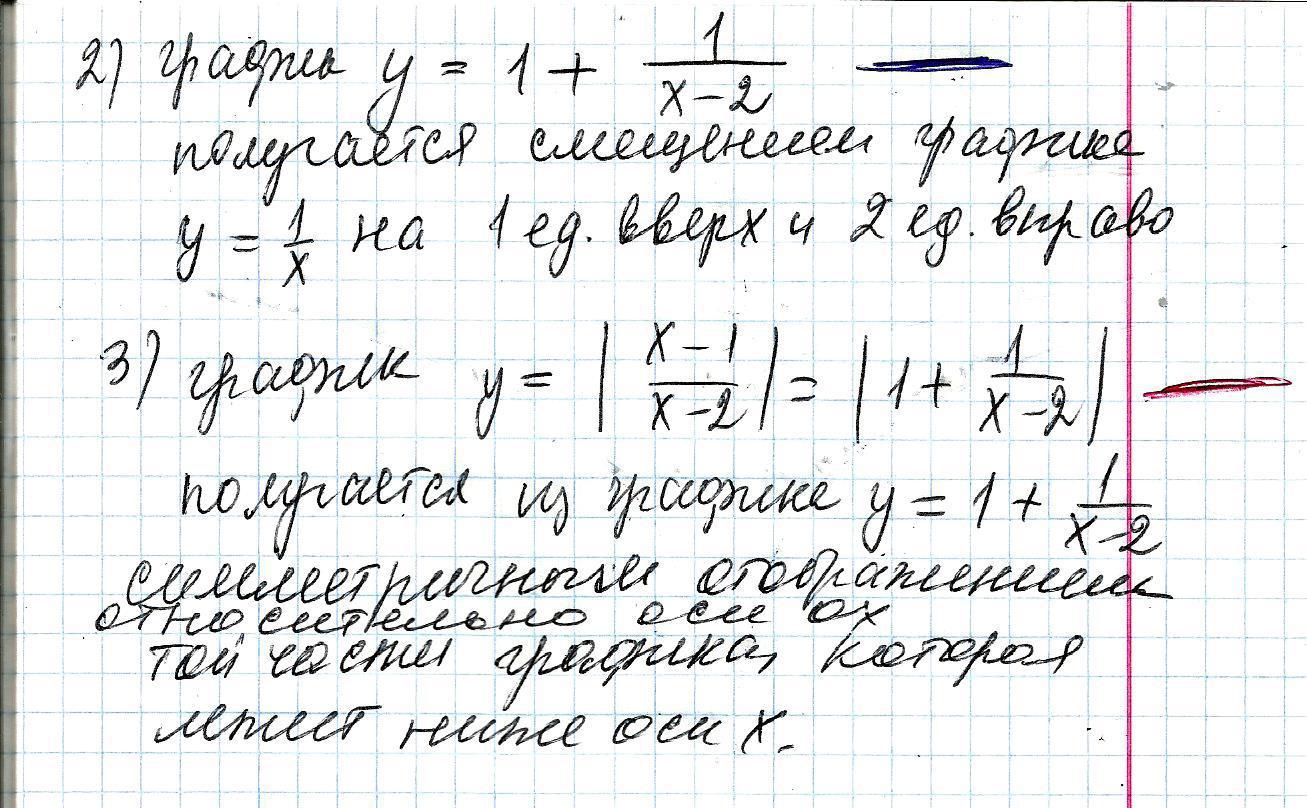 2) график y = 1 + 1/(x-2)
получается смещением графика
y = 1/x на 1 ед. вверх и 2 ед. вправо
3) график y = |(x-1)/(x-2)| = |1 + 1/(x-2)|
получается из графика y = 1 + 1/(x-2)
симметричным отображением
относительно оси ох
той части графика, которая
лежит ниже оси х.